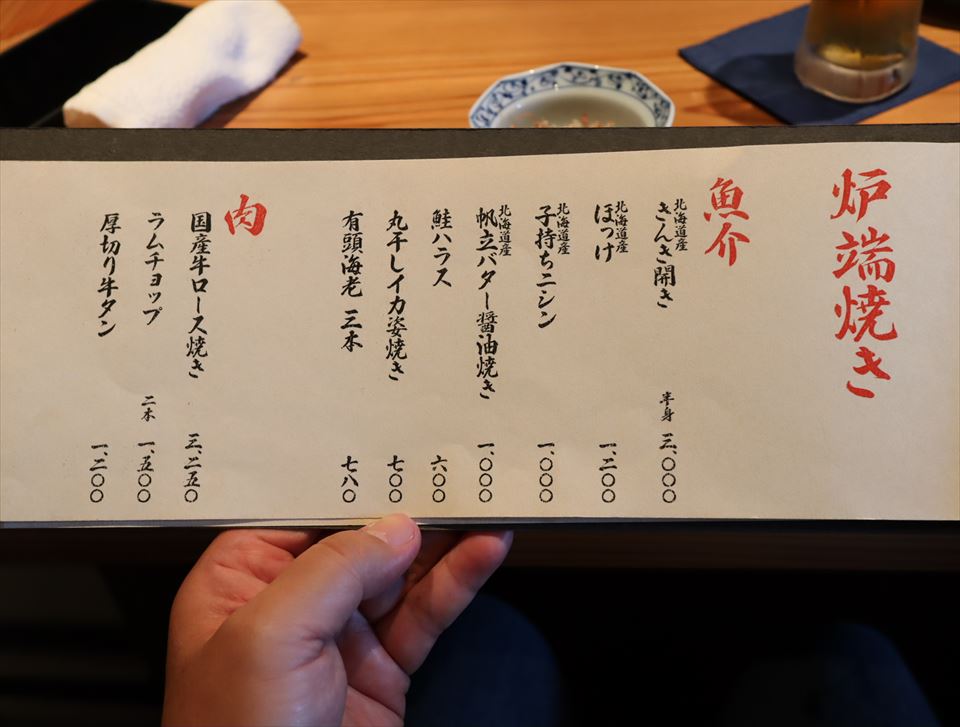 炉端焼き
魚介
北海道産
きんき開き 半身 三、〇〇〇
北海道産
ほっけ 一、二〇〇
北海道産
子持ちニシン 一、〇〇〇
北海道産
帆立バター醤油焼き 一、〇〇〇
鮭ハラス 六〇〇
丸干しイカ姿焼き 七〇〇
有頭海老 三本 七八〇
肉
国産牛ロース焼き 三、二五〇
ラムチョップ 二本 一、五〇〇
厚切り牛タン 一、二〇〇